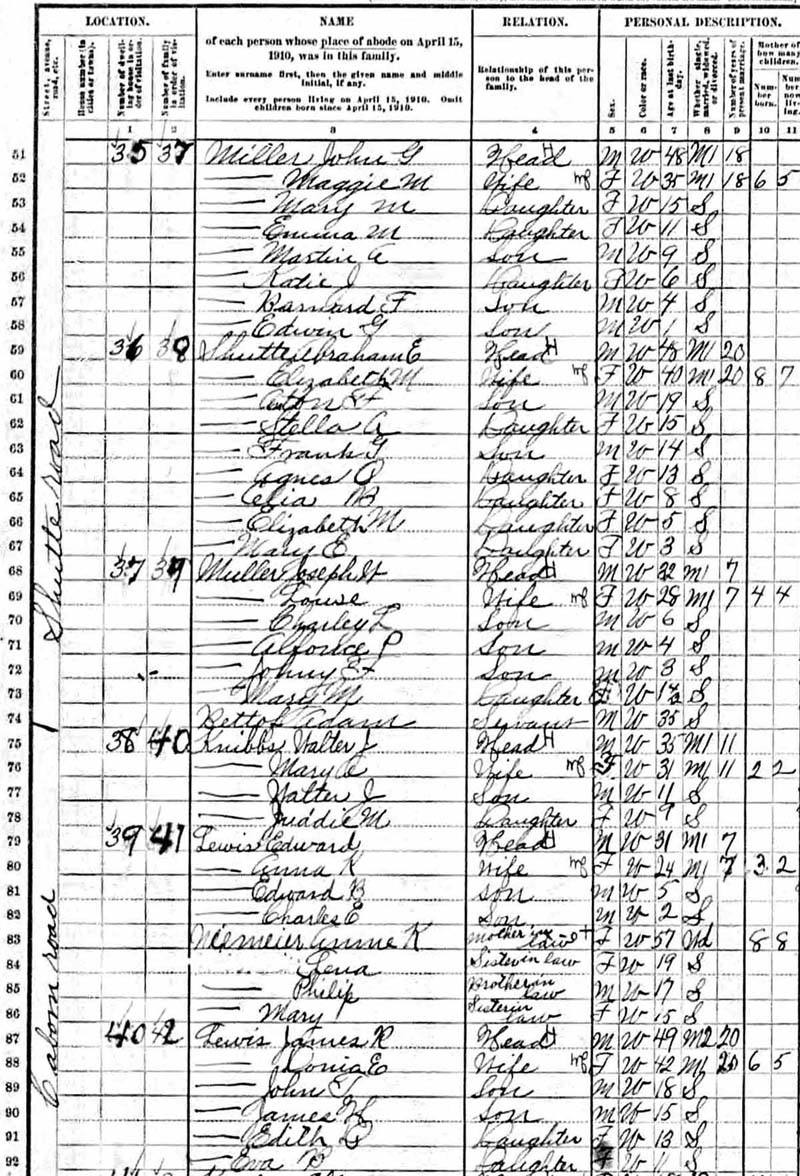 LOCATION. NAME RELATION. PERSONAL DESCRIPTION.
Street, avenue, road, etc.
House number (in cities or towns).
Number of dwelling house in order of visitation.
Number of family in order of visitation.
of each person whose place of abode on April 15, 1910, was in this family.
Enter surname first, then the given name and middle initial, if any.
Include every person living on April 15, 1910. Omit children born since April 15, 1910.
Relationship of this person to the head of the family.
Sex.
Color or race.
Age at last birthday.
Whether single, married, widowed, or divorced.
Number of years of present marriage.
Mother of how many children.
Number born.
Number now living.
1 2 3 4 5 6 7 8 9 10 11
51 35 37 Miller John G Head M W 48 M1 18
52 — Maggie M Wife F W 35 M1 18 6 5
53 — Mary M Daughter F W 15 S
54 — Emma M Daughter F W 11 S
55 — Martin A Son M W 9 S
56 — Katie J Daughter F W 6 S
57 — Barnard F Son M W 4 S
58 — Edwin G Son M W 1 S
59 36 38 Shuttle Abraham E Head M W 48 M1 20
60 — Elizabeth M Wife F W 40 M1 20 8 7
61 — Son M W 19 S
62 — Stella A Daughter F W 15 S
63 — Frank G Son M W 14 S
64 — Agnes O Daughter F W 13 S
65 — Celia B Daughter F W 8 S
66 — Elizabeth M Daughter F W 5 S
67 — Mary E Daughter F W 3 S
Shuttle road
68 37 39 Muller Joseph H Head M W 32 M1 7
69 — Louise Wife F W 28 M1 7 4 4
70 — Charley L Son M W 6 S
71 — Alfonce P Son M W 4 S
72 — Johny Son M W 3 S
73 — Mary M Daughter F W S
74 Adam Servant M W 35 S
75 38 40 Knibbs Walter J Head M W 35 M1 11
76 — Mary Wife F W 31 M1 11 2 2
77 — Walter J Son M W 11 S
78 — M Daughter F W 9 S
79 39 41 Lewis Edward Head M W 31 M1 7
80 — Anna K Wife F W 24 M1 7 3 2
81 — Edward B Son M W 5 S
82 — Charles E Son M W 2 S
83 Niemeier Annie K Mother in law F W 57 Wd 8 8
84 — Lena Sister in law F W 19 S
85 — Philip Brother in law M W 17 S
86 — Mary Sister in law F W 15 S
Caborn road
87 40 42 Lewis James R Head M W 49 M2 20
88 — E Wife F W 42 M1 20 6 5
89 — John Son M W 18 S
90 — James Son M W 15 S
91 — Edith Daughter F W 13 S
92 — Eva B Daughter F W 11 S